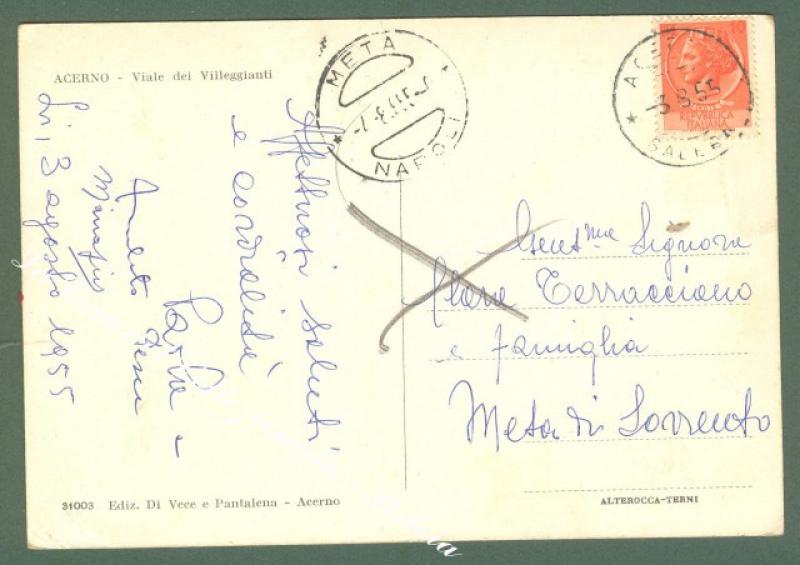 ACERNO - Viale dei Villeggianti
META
-7.-8.55
NAPOLI
ACERNO
-3.8.55
SALERNO
10
REPVBBLICA
ITALIANA
Affettuosi saluti
e cordialità
Li, 3 agosto 1955
Gent.ma Signora
Clara Terracciano
e famiglia
Meta di Sorrento
31003 Ediz. Di Vece e Pantalena - Acerno
ALTEROCCA-TERNI